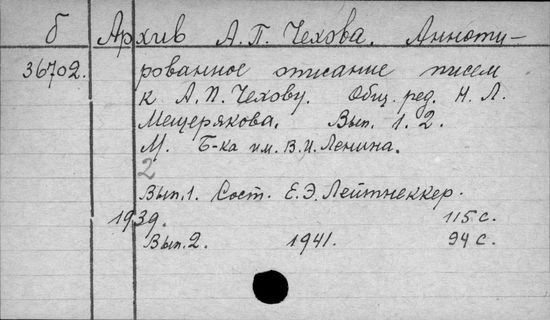 б Архив А.П. Чехова. Анноти-
36702. рованное описание писем
к А.П. Чехову. Общ. ред. Н.Л.
Мещерякова. Вып. 1. 2.
М. Б-ка им. В.И. Ленина.
2
Вып. 1. Сост. Е.Э. Лейтнеккер.
1939. 115 с.
Вып. 2. 1941. 94 с.